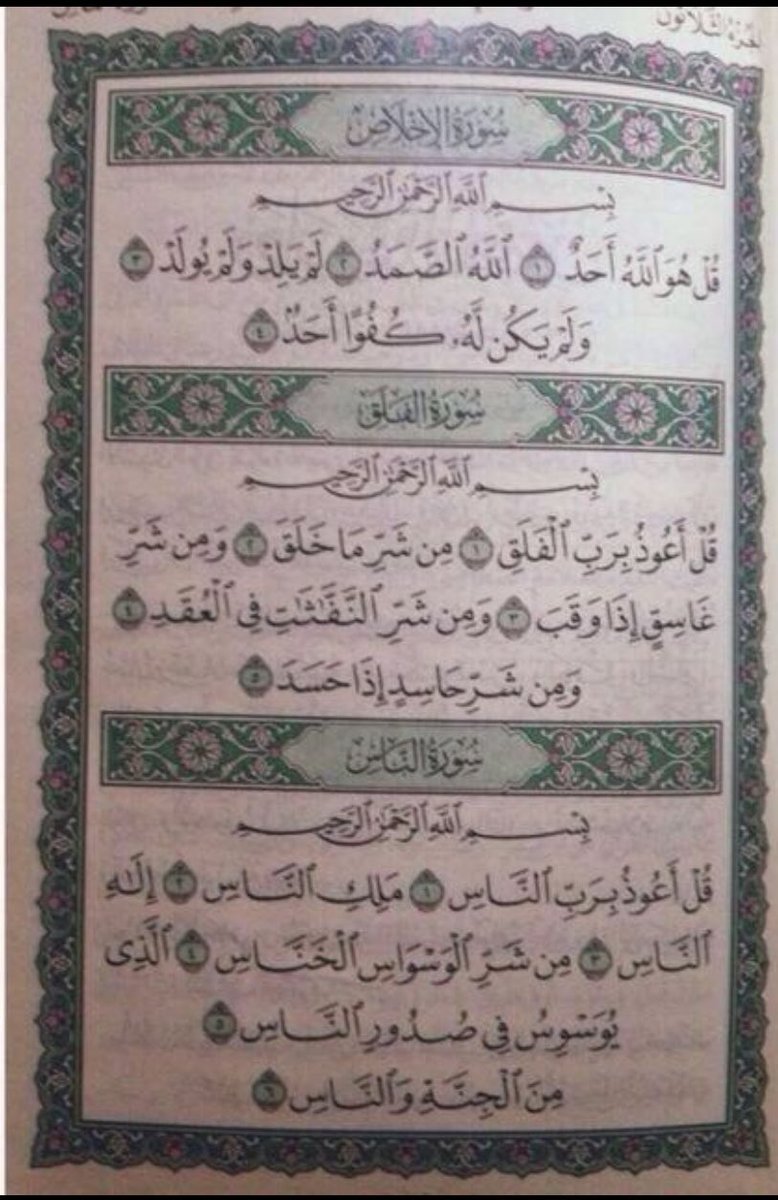 الجزء الثلاثون
سُورَةُ الإِخْلَاصِ
بِسْمِ ٱللَّهِ ٱلرَّحْمَٰنِ ٱلرَّحِيمِ
قُلْ هُوَ ٱللَّهُ أَحَدٌ ١ ٱللَّهُ ٱلصَّمَدُ ٢ لَمْ يَلِدْ وَلَمْ يُولَدْ ٣
وَلَمْ يَكُن لَّهُۥ كُفُوًا أَحَدٌۢ ٤
سُورَةُ الفَلَقِ
بِسْمِ ٱللَّهِ ٱلرَّحْمَٰنِ ٱلرَّحِيمِ
قُلْ أَعُوذُ بِرَبِّ ٱلْفَلَقِ ١ مِن شَرِّ مَا خَلَقَ ٢ وَمِن شَرِّ
غَاسِقٍ إِذَا وَقَبَ ٣ وَمِن شَرِّ ٱلنَّفَّٰثَٰتِ فِى ٱلْعُقَدِ ٤
وَمِن شَرِّ حَاسِدٍ إِذَا حَسَدَ ٥
سُورَةُ النَّاسِ
بِسْمِ ٱللَّهِ ٱلرَّحْمَٰنِ ٱلرَّحِيمِ
قُلْ أَعُوذُ بِرَبِّ ٱلنَّاسِ ١ مَلِكِ ٱلنَّاسِ ٢ إِلَٰهِ
ٱلنَّاسِ ٣ مِن شَرِّ ٱلْوَسْوَاسِ ٱلْخَنَّاسِ ٤ ٱلَّذِى
يُوَسْوِسُ فِى صُدُورِ ٱلنَّاسِ ٥
مِنَ ٱلْجِنَّةِ وَٱلنَّاسِ ٦